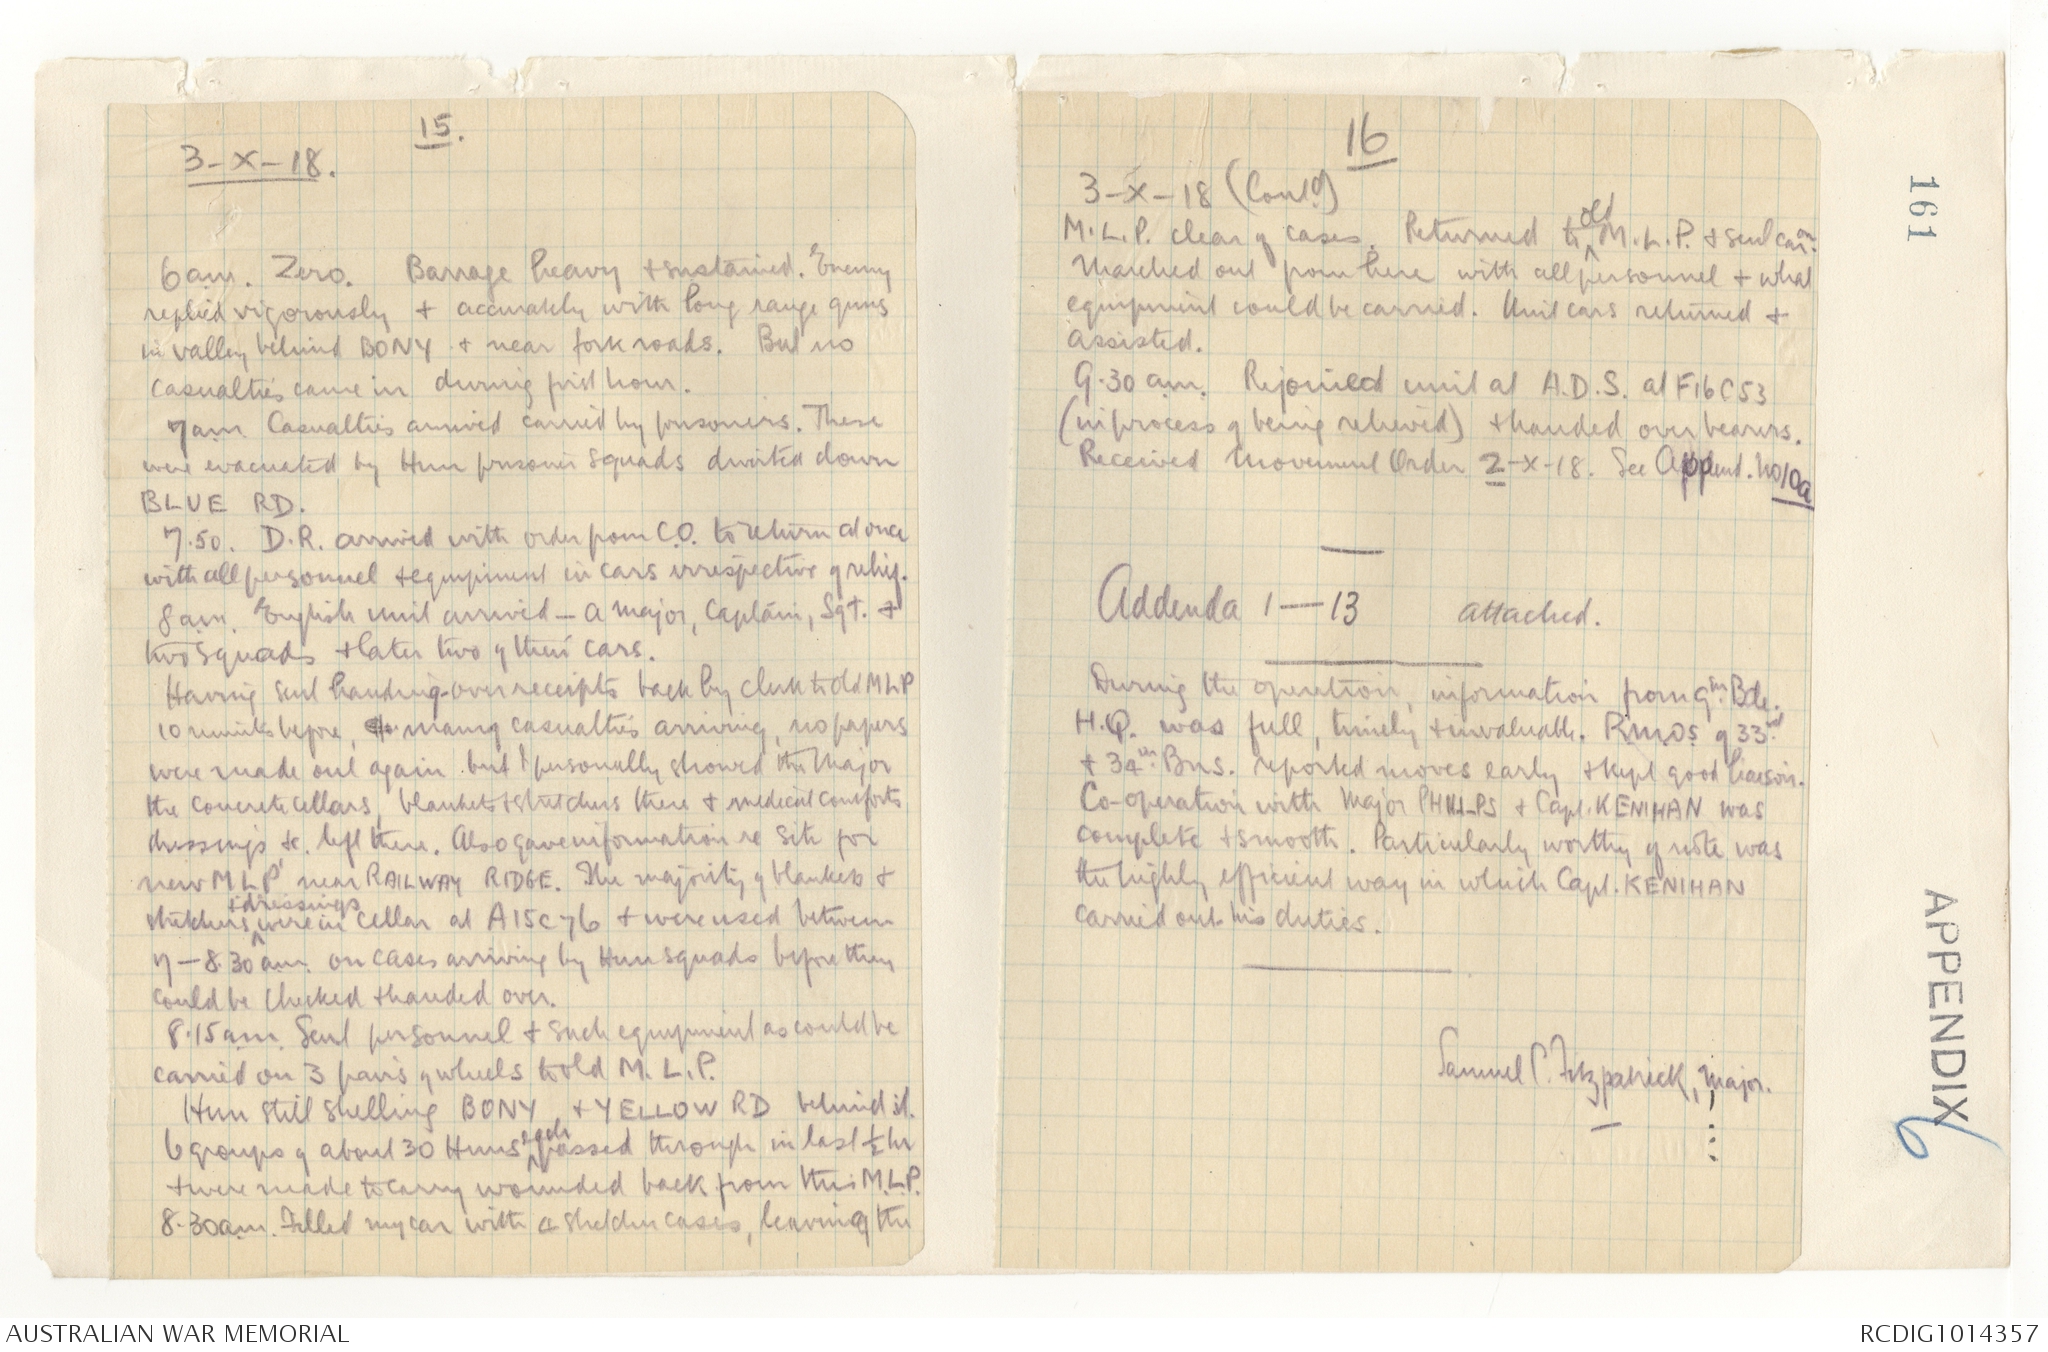 15.
3-X-18.
6am. Zero. Barrage heavy & sustained. Enemy
replied vigorously & accurately with long range guns
in valley behind BONY & near fork roads. But no
casualties came in during first hour.
7am. Casualties arrived carried by prisoners. These
were evacuated by Hun prisoner squads diverted down
BLUE RD.
7.50. D.R. arrived with order from C.O. to return at once
with all personnel & equipment in cars irrespective of relief.
8am. English unit arrived - a Major, Captain, Sgt. &
two squads & later two of their cars.
Having sent handing-over receipts back by clerk to old MLP
10 minutes before, & many casualties arriving, no papers
were made out again but I personally showed the Major
the concrete cellars, blankets & stretchers there & medical comforts
dressings &c. left there. Also gave information re site for
new MLP near RAILWAY RIDGE. The majority of blankets &
& dressings
stretchers were in cellar at A15c76 & were used between
7-8.30am. on cases arriving by Hun squads before they
could be checked & handed over.
8.15am. Sent personnel & such equipment as could be
carried on 3 pairs of wheels to old M.L.P.
Hun still shelling BONY & YELLOW RD behind it.
6 groups of about 30 Huns each passed through in last ½ hr
& were made to carry wounded back from this M.L.P.
8.30am. Filled my car with a stretcher cases, leaving the
16
3-X-18 (Contd)
M.L.P. clear of cases. Returned to old M.L.P. & sent car on.
Marched out from here with all personnel & what
equipment could be carried. Unit cars returned &
assisted.
9.30 am. Rejoined unit at A.D.S. at F16C53
(in process of being relieved) & handed over bearers.
Received Movement Order 2-X-18. See Append. No 10a
Addenda 1-13 attached.
During the operation, information from 9th Bde.
H.Q. was full, timely & invaluable. RMOs of 33rd
& 34th Bns. reported moves early & kept good liaison.
Co-operation with Major PHILLPS & Capt. KENIHAN was
complete & smooth. Particularly worthy of note was
the highly efficient way in which Capt. KENIHAN
carried out his duties.
Samuel P. Fitzpatrick, Major.
161
APPENDIX 6
AUSTRALIAN WAR MEMORIAL
RCDIG1014357